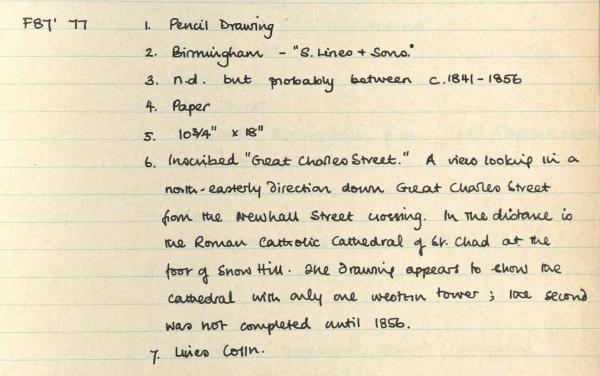 F87' 77 1. Pencil Drawing
2. Birmingham - "S. Lines + Sons."
3. n.d. but probably between c.1841-1856
4. Paper
5. 10 3/4" x 18"
6. Inscribed "Great Charles Street." A view looking in a
north-easterly direction down Great Charles Street
from the Newhall Street crossing. In the distance is
the Roman Catholic Cathedral of St. Chad at the
foot of Snow Hill. The drawing appears to show the
cathedral with only one western tower; the second
was not completed until 1856.
7. Lines Colln.